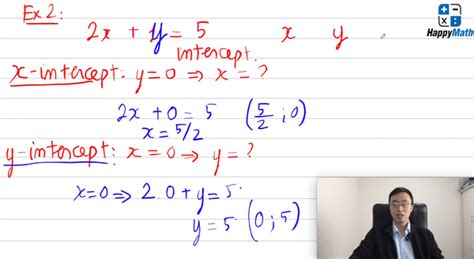 Ex 2:
2x + y = 5 x y
HappyMath
intercept.
x-intercept. y=0 ⇒ x = ?
2x + 0 = 5 (5/2 ; 0)
x = 5/2
y-intercept: x = 0 ⇒ y = ?
x=0 ⇒ 2.0 + y = 5.
y = 5. (0 ; 5)